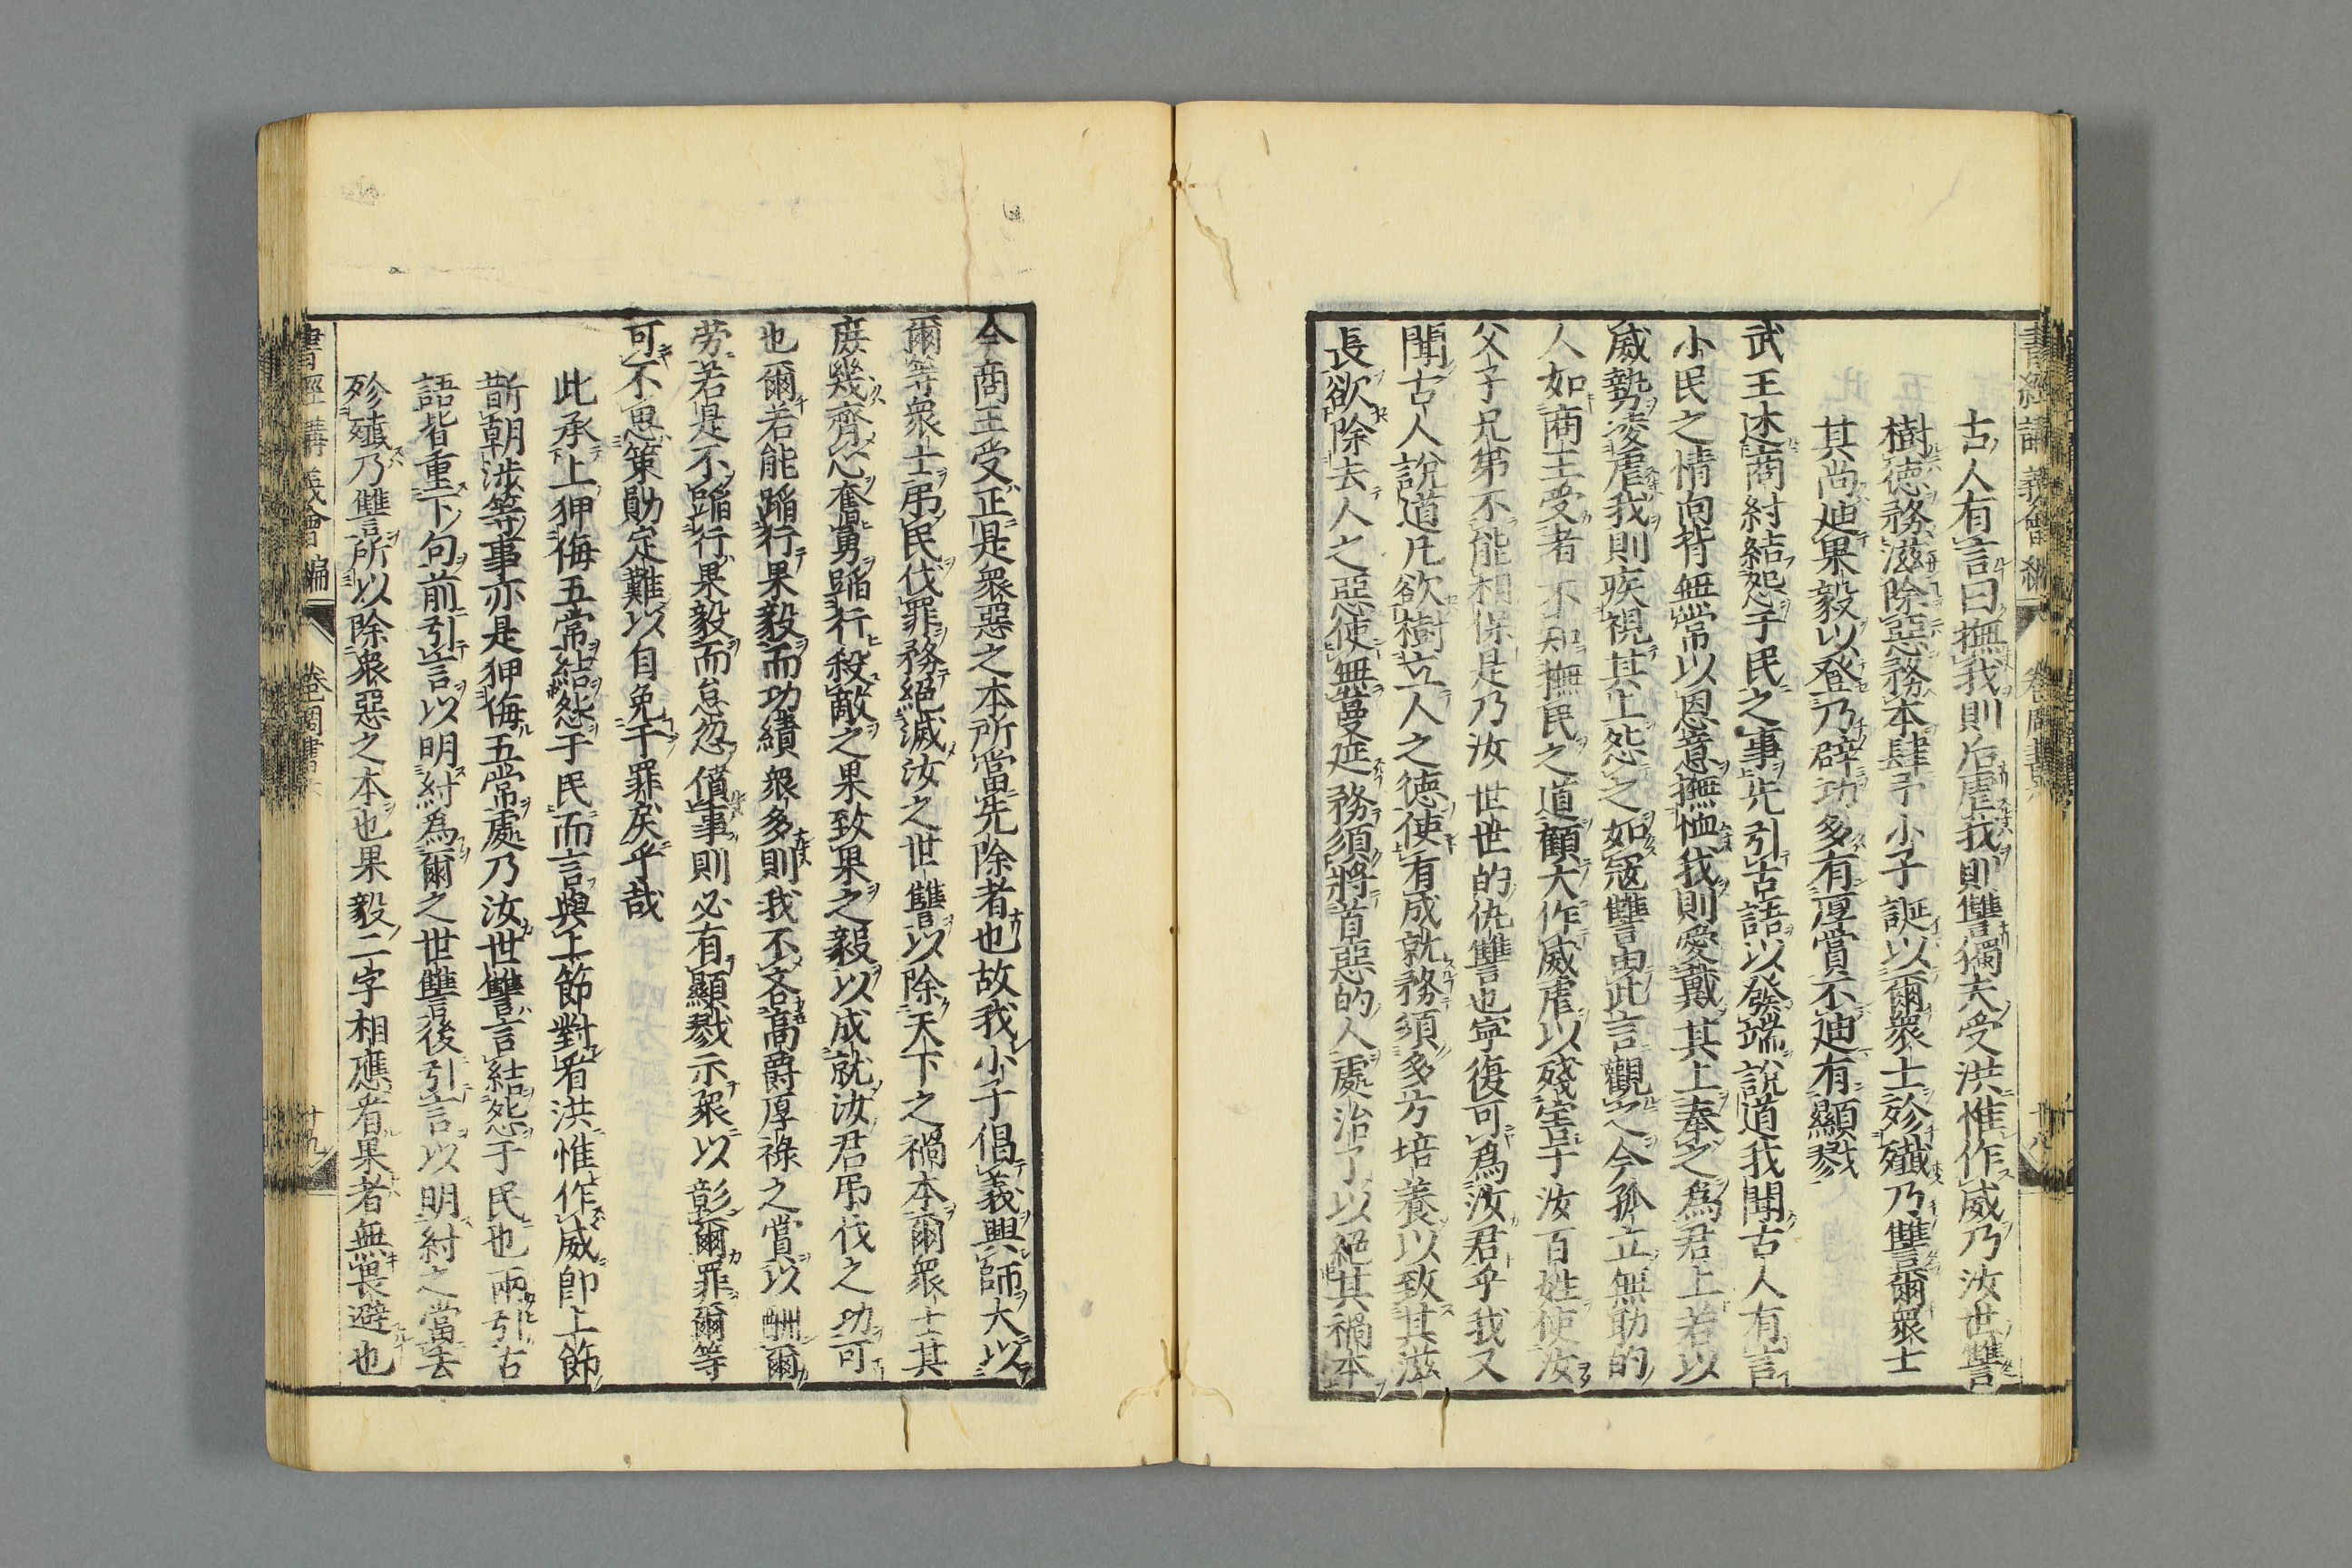 古人有言曰撫我則后虐我則讐獨夫受洪惟作威乃汝世讐
樹德務滋除惡務本肆予小子誕以爾衆士殄殲乃讐爾衆士
其尚廸果毅以登乃辟功多有厚賞不廸有顯戮
武王述商紂結怨于民之事先引古語以發端說道我聞古人有言
小民之情向背無常以恩意撫恤我則愛戴其上奉之爲君上若以
威勢凌虐我則疾視其上怨之如寇讐由此言觀之今孤立無助的
人如商王受者不知撫民之道顧大作威虐以殘害于汝百姓使汝
父子兄弟不能相保是乃汝世世的仇讐也寧復可爲汝君乎我又
聞古人說道凡欲樹立人之德使有成就務須多方培養以致其滋
長欲除去人之惡使無蔓延務須將首惡的人處治了以絕其禍本
今商王受正是衆惡之本所當先除者也故我小子倡義興師大以
爾等衆士弔民伐罪務絕滅汝之世讐以除天下之禍本爾衆士其
庶幾齊心奮勇蹈行殺敵之果致果之毅以成就汝君弔伐之功可
也爾若能蹈行果毅而功績衆多則我不吝高爵厚祿之賞以酬爾
勞若是不蹈行果毅而怠忽僨事則必有顯戮示衆以彰爾罪爾等
可不思策勛定難以自免于罪戾乎哉
此承上狎侮五常結怨于民而言與上節對看洪惟作威卽上節
斮朝涉等事亦是狎侮五常處乃汝世讐言結怨于民也兩引古
語皆重下句前引言以明紂爲爾之世讐後引言以明紂之當去
殄殲乃讐所以除衆惡之本也果毅二字相應看果者無畏避也
書經講義會編
卷 周書
十九